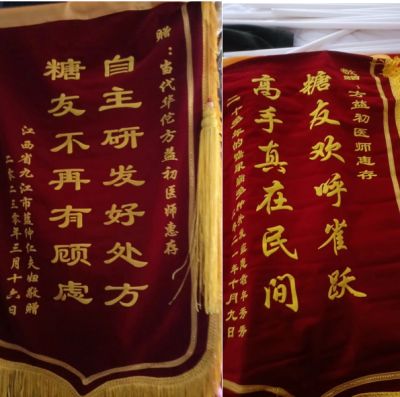 赠：当代华佗方益初医师惠存
自主研发好处方
糖友不再有顾虑
江西省九江市蓝仲仁夫妇敬赠
三月十六日
敬赠：方益初医师惠存
糖友欢呼雀跃
高手真在民间
二十多年的
年十月九日